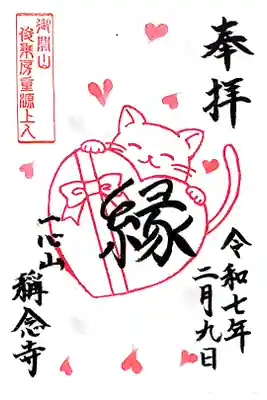 奉拝
令和七年
二月九日
縁
一心山
稱念寺
御開山
俊乗房重源上人